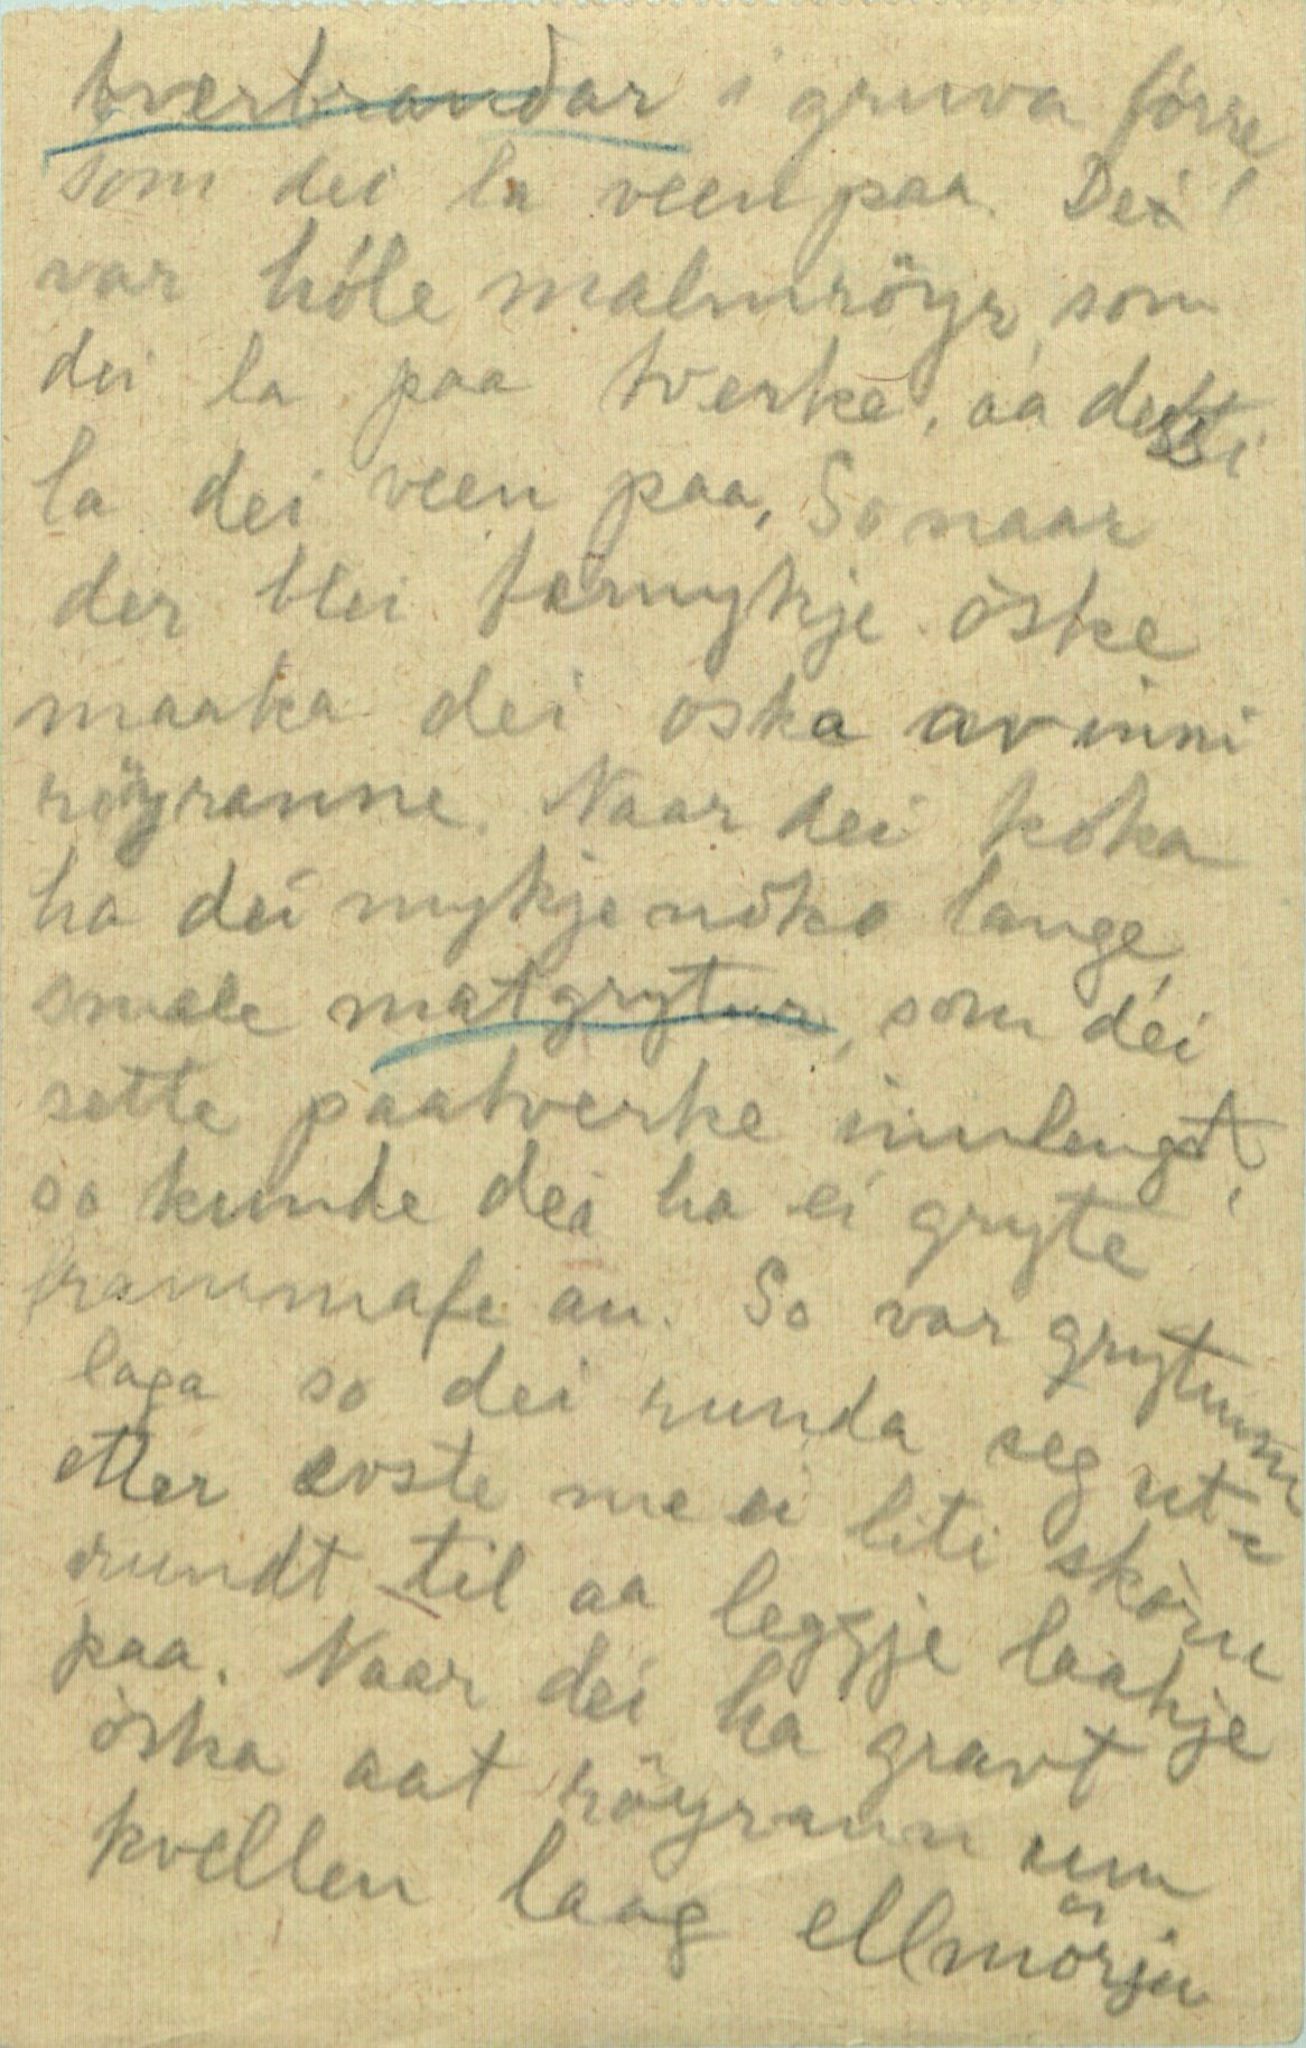 tverbrandar i gruva förre,
som dei la veen paa. Dei
var hóle malmröyr, som
dei la paa tverke, aa dessi
la dei veen paa. So naar
der blei formykje òske
maaka dei òska av inni
röyranne. Naar dei koka
ha dei mykje nòko lange,
smale matgrytur, som dei
sette paatverke innlengst,
so kunde dei ha ei gryte
frammafe an. So var grytunn
laga so dei runda seg ut-
etter övste me ei liti skòru
rundt til aa leggje laakje
paa. Naar dei ha gravt
òska aat röyrann um
kvellen laag ellmörja